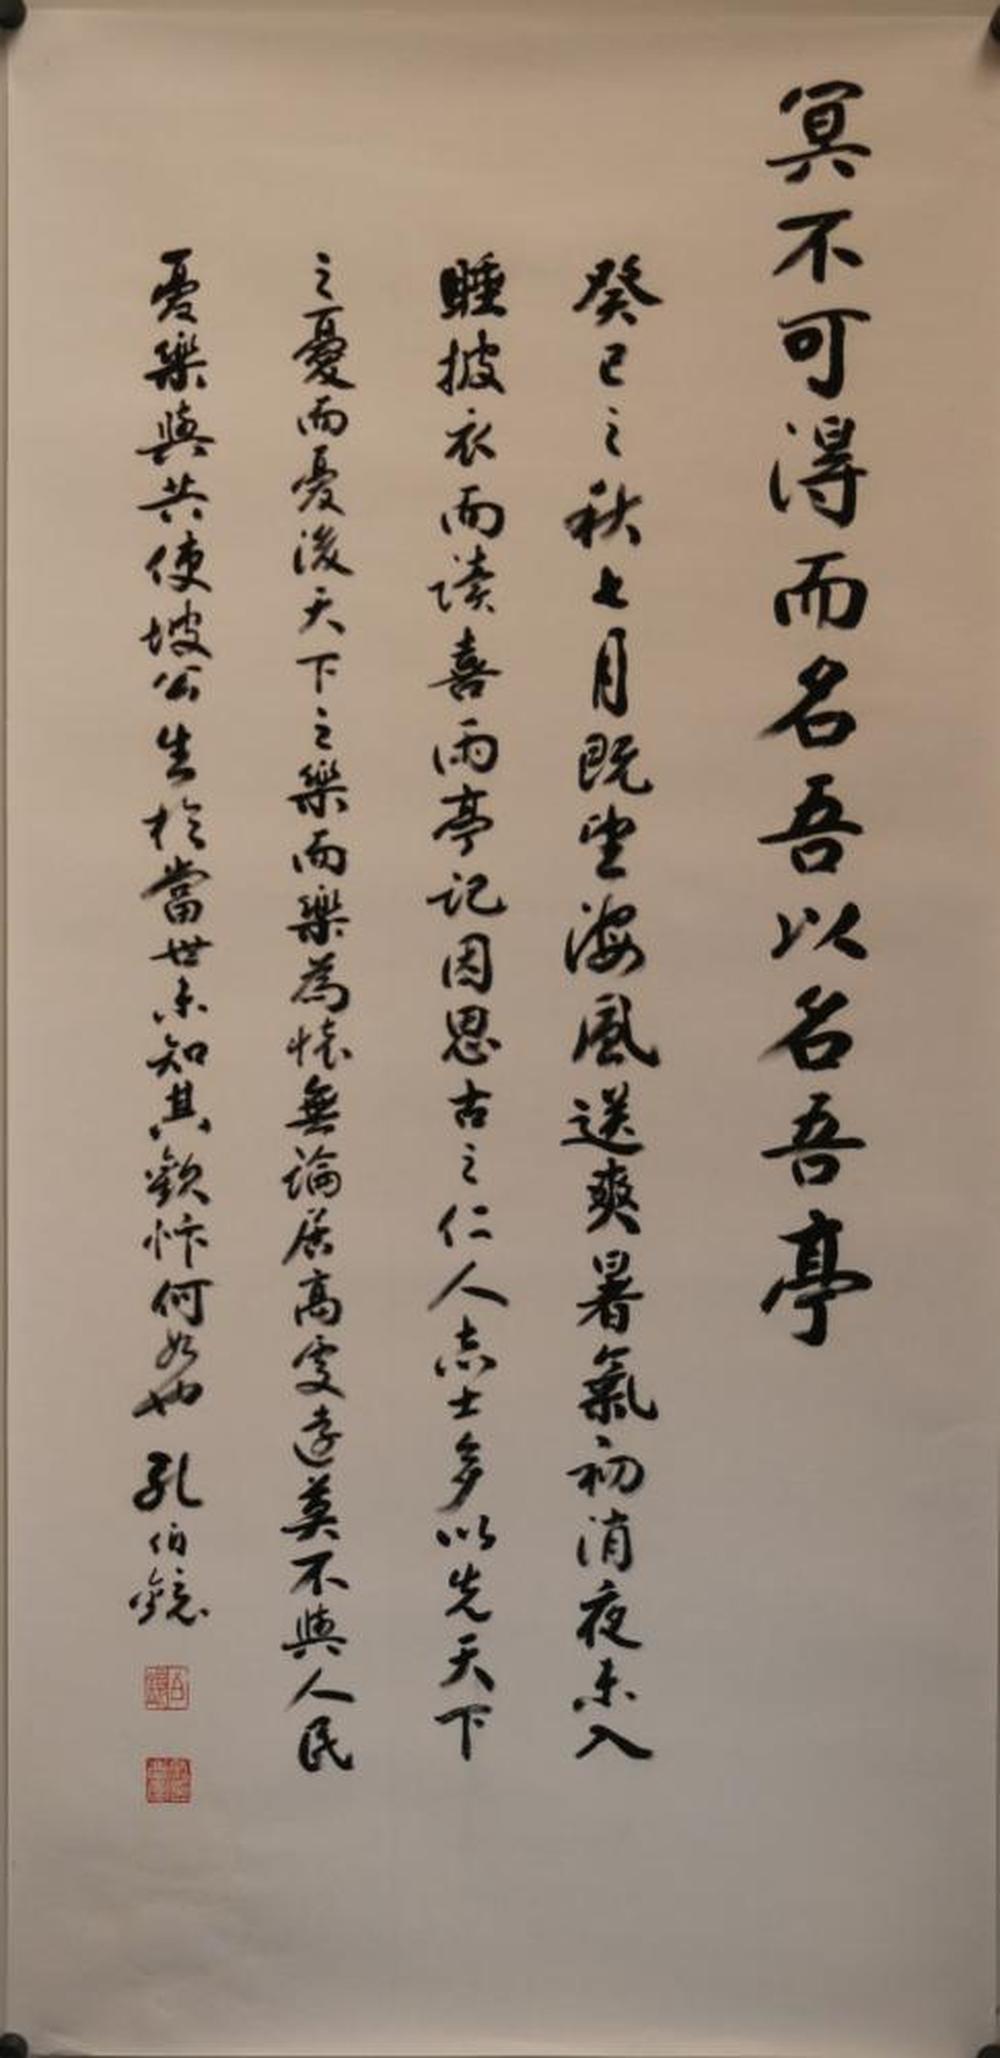 冥不可得而名吾以名吾亭
癸已之秋七月既望海風送爽暑氣初消夜未入
睡披衣而读喜雨亭記因思古之仁人志士多以先天下
之憂而憂後天下之樂而樂為懷無論居高處遠莫不與人民
憂樂與共使坡公生於當世未知其歡忭何如也 孔伯